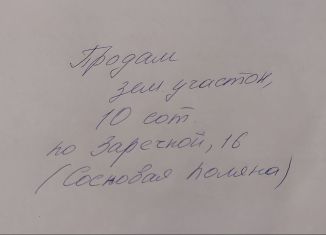 Продам
зем участок,
10 сот.
по Заречной, 16
(Сосновая поляна)